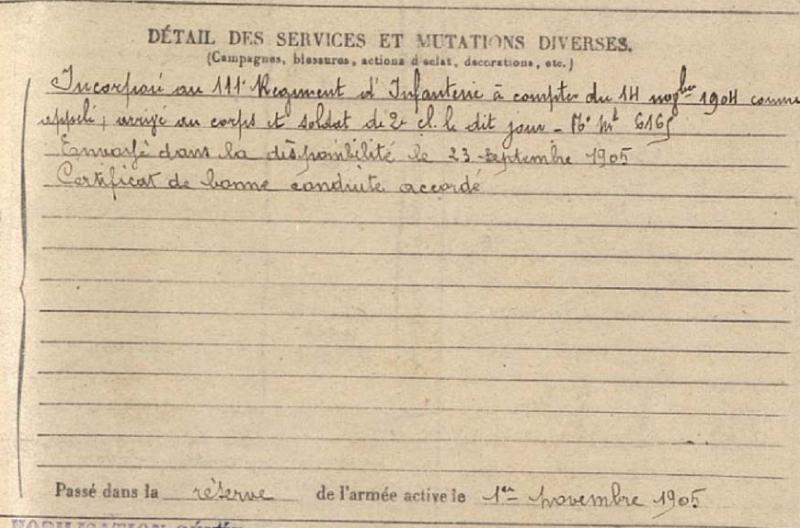 DÉTAIL DES SERVICES ET MUTATIONS DIVERSES.
(Campagnes, blessures, actions d'éclat, décorations, etc.)
Incorporé au 111e Régiment d'Infanterie à compter du 14 novbre 1904 comme
appelé, arrivé au corps et soldat de 2e cl. le dit jour - No Mle 6165
Envoyé dans la disponibilité le 23 septembre 1905
Certificat de bonne conduite accordé
Passé dans la réserve de l'armée active le 1er novembre 1905